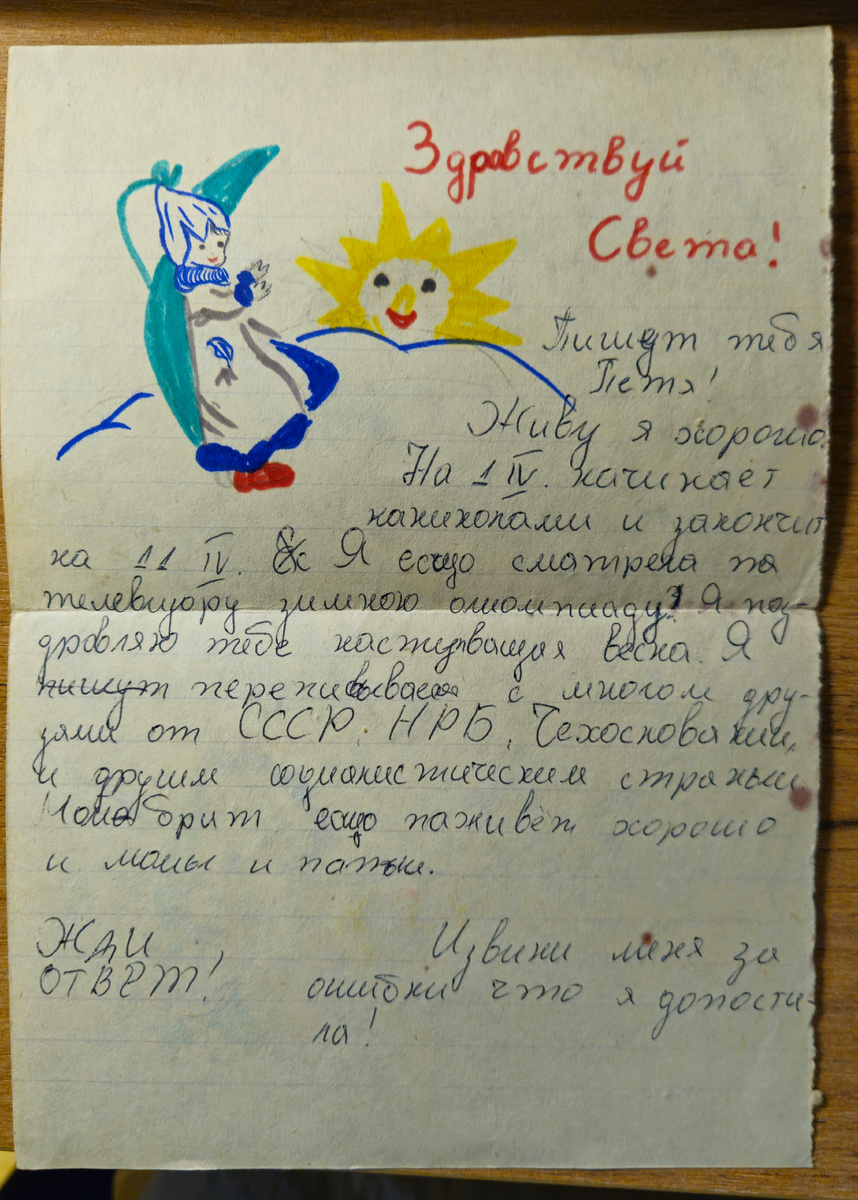 Здравствуй
Света!
Пишет тебя
Петя!
Живу я хорошо.
На 1 IV. начинает
каникопами и закончит
на 11 IV. Я есщо сматрела на
телевизору зимною оломпиаду! Я поз-
дровляю тебе настунващая весна. Я
пишут с многом дру-
зями от СССР, НРБ, Чехословакии,
и другим социалистическим страным
брит есщо паживёт хорошо
и мамы и
ЖДИ
ОТВЕТ!
Извини меня за
ошибки что я допости-
ла!